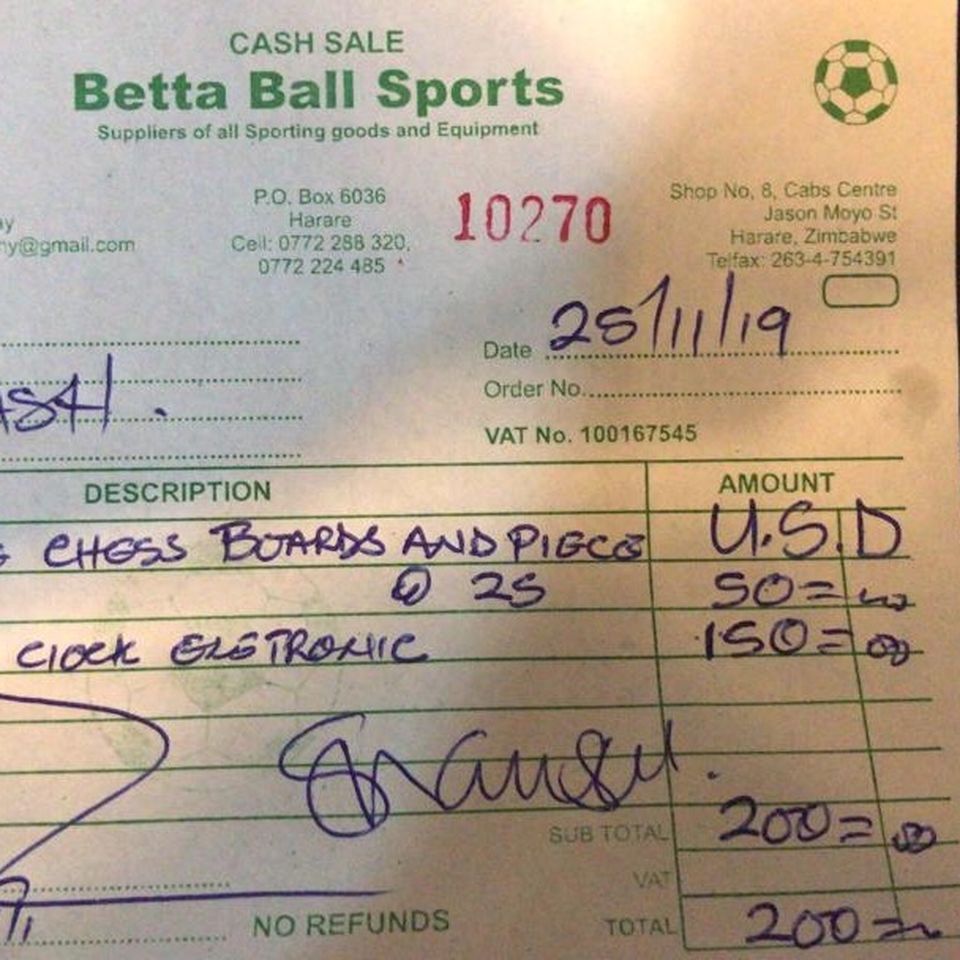 CASH SALE
Betta Ball Sports
Suppliers of all Sporting goods and Equipment
P.O. Box 6036
Harare
Cell: 0772 288 320,
0772 224 485
ay
ny@gmail.com
10270
Shop No, 8, Cabs Centre
Jason Moyo St
Harare, Zimbabwe
Telfax: 263-4-754391
Date 25/11/19
Order No.
VAT No. 100167545
ASH.
DESCRIPTION AMOUNT
CHESS BOARDS AND PIECE U.S.D
@ 25 50=00
CLOCK ELETRONIC 150=00
SUB TOTAL 200=00
VAT
TOTAL 200=
NO REFUNDS